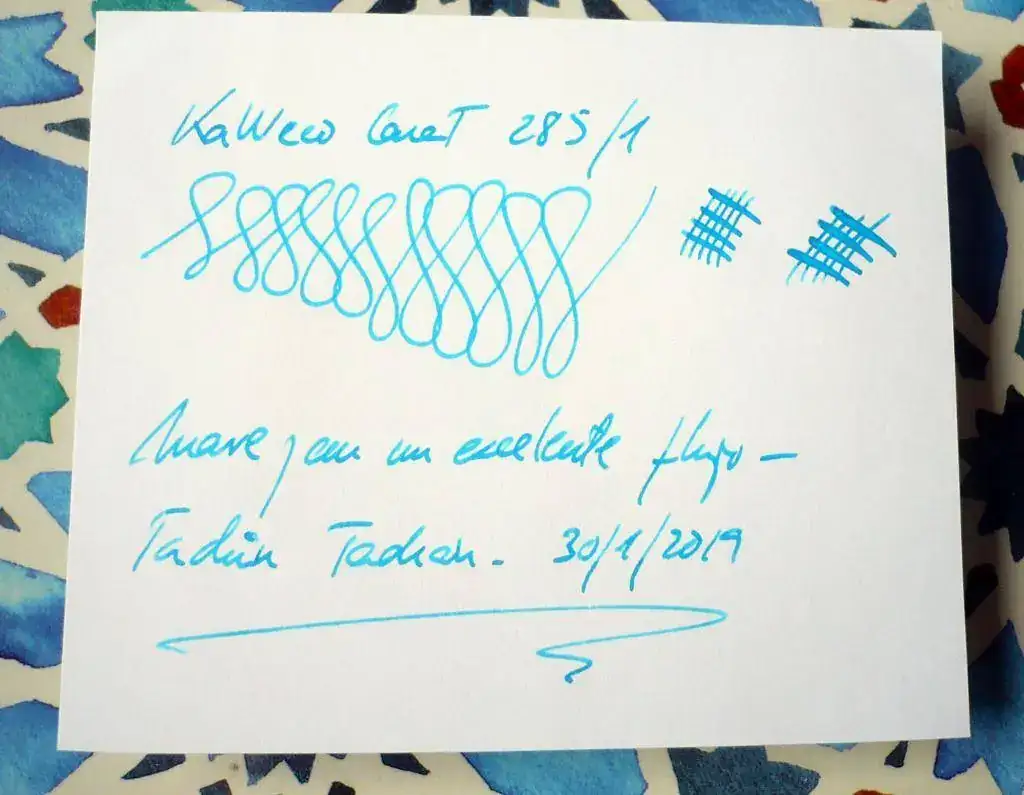 KaWeco Carat 285/1
suave y con un excelente flujo -
Tachin Tachan. 30/1/2019